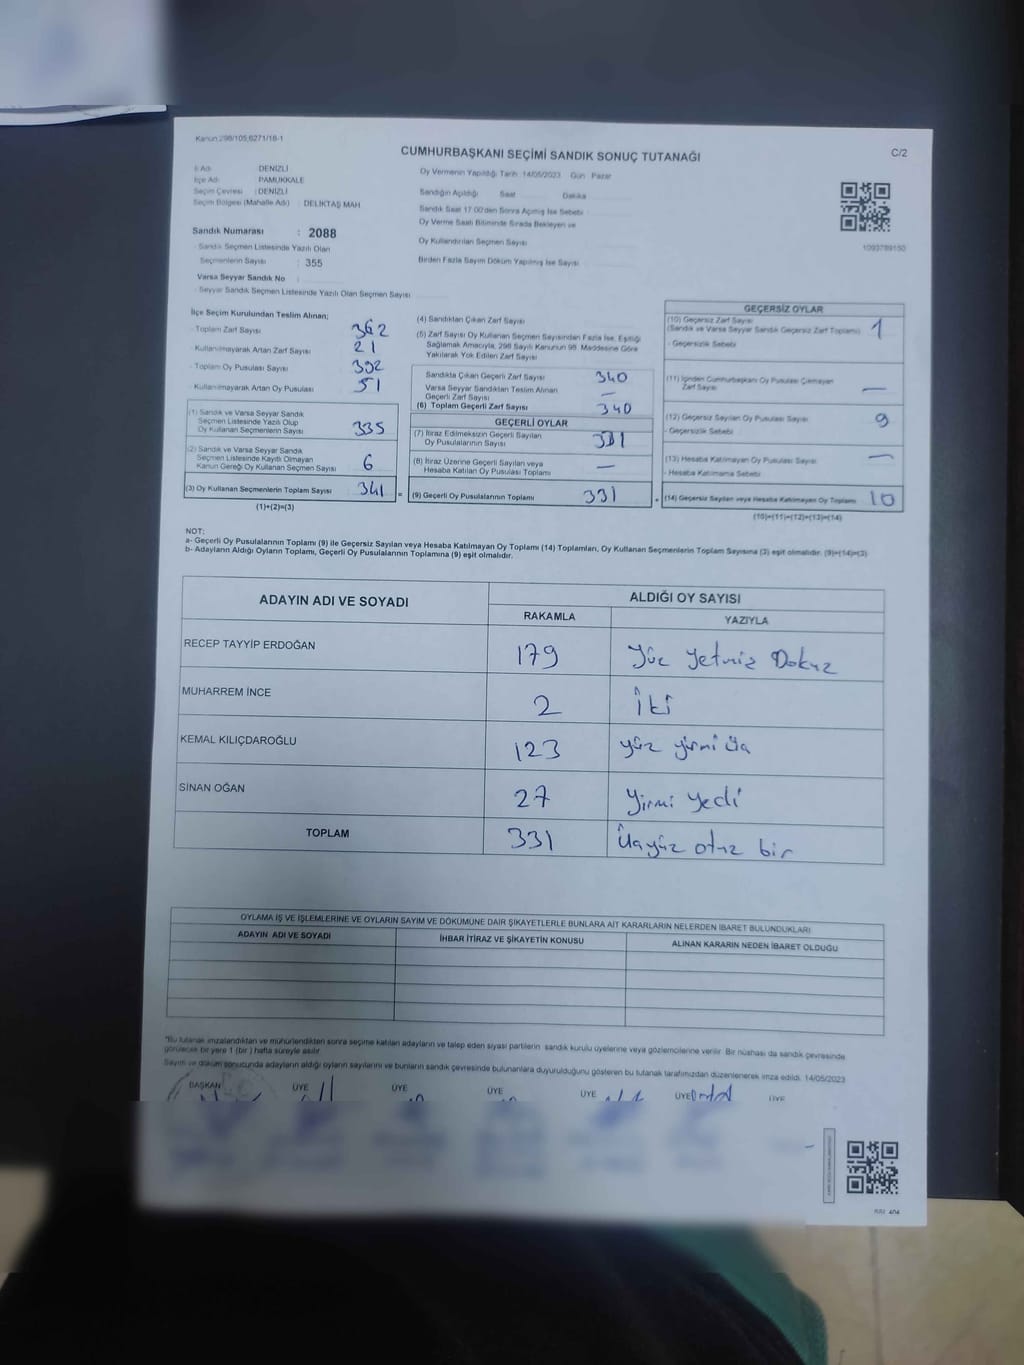 Kanun:298/105;6271/18-1
CUMHURBAŞKANI SEÇİMİ SANDIK SONUÇ TUTANAĞI
C/2
İl Adı DENİZLİ
İlçe Adı PAMUKKALE
Seçim Çevresi : DENİZLİ
Seçim Bölgesi (Mahalle Adı) : DELİKTAŞ MAH
Sandık Numarası : 2088
Sandık Seçmen Listesinde Yazılı Olan
Seçmenlerin Sayısı : 355
Varsa Seyyar Sandık No :
- Seyyar Sandık Seçmen Listesinde Yazılı Olan Seçmen Sayısı
Oy Vermenin Yapıldığı Tarih :14/05/2023 Gün : Pazar
Sandığın Açıldığı Saat Dakika
Sandık Saat 17:00'den Sonra Açılmış İse Sebebi
Oy Verme Saati Bitiminde Sırada Bekleyen ve
Oy Kullandırılan Seçmen Sayısı
Birden Fazla Sayım Döküm Yapılmış İse Sayısı
1093789150
İlçe Seçim Kurulundan Teslim Alınan;
- Toplam Zarf Sayısı 362
- Kullanılmayarak Artan Zarf Sayısı 21
- Toplam Oy Pusulası Sayısı 392
- Kullanılmayarak Artan Oy Pusulası 51
(1) Sandık ve Varsa Seyyar Sandık
Seçmen Listesinde Yazılı Olup
Oy Kullanan Seçmenlerin Sayısı 335
(2) Sandık ve Varsa Seyyar Sandık
Seçmen Listesinde Kayıtlı Olmayan
Kanun Gereği Oy Kullanan Seçmen Sayısı 6
(3) Oy Kullanan Seçmenlerin Toplam Sayısı 341
(1)+(2)=(3)
=
(4) Sandıktan Çıkan Zarf Sayısı
(5) Zarf Sayısı Oy Kullanan Seçmen Sayısından Fazla İse, Eşitliği
Sağlamak Amacıyla, 298 Sayılı Kanunun 98. Maddesine Göre
Yakılarak Yok Edilen Zarf Sayısı
Sandıkta Çıkan Geçerli Zarf Sayısı 340
Varsa Seyyar Sandıktan Teslim Alınan
Geçerli Zarf Sayısı —
(6) Toplam Geçerli Zarf Sayısı 340
GEÇERLİ OYLAR
(7) İtiraz Edilmeksizin Geçerli Sayılan
Oy Pusulalarının Sayısı 331
(8) İtiraz Üzerine Geçerli Sayılan veya
Hesaba Katılan Oy Pusulası Toplamı —
(9) Geçerli Oy Pusulalarının Toplamı 331
GEÇERSİZ OYLAR
(10) Geçersiz Zarf Sayısı
(Sandık ve Varsa Seyyar Sandık Geçersiz Zarf Toplamı) 1
- Geçersizlik Sebebi
(11) İçinden Cumhurbaşkanı Oy Pusulası Çıkmayan
Zarf Sayısı —
(12) Geçersiz Sayılan Oy Pusulası Sayısı 9
- Geçersizlik Sebebi
(13) Hesaba Katılmayan Oy Pusulası Sayısı —
- Hesaba Katılmama Sebebi
(14) Geçersiz Sayılan veya Hesaba Katılmayan Oy Toplamı 10
(10)+(11)+(12)+(13)=(14)
NOT:
a- Geçerli Oy Pusulalarının Toplamı (9) ile Geçersiz Sayılan veya Hesaba Katılmayan Oy Toplamı (14) Toplamları, Oy Kullanan Seçmenlerin Toplam Sayısına (3) eşit olmalıdır. (9)+(14)=(3)
b- Adayların Aldığı Oyların Toplamı, Geçerli Oy Pusulalarının Toplamına (9) eşit olmalıdır.
ADAYIN ADI VE SOYADI ALDIĞI OY SAYISI
RAKAMLA YAZIYLA
RECEP TAYYİP ERDOĞAN 179 Yüz Yetmiş Dokuz
MUHARREM İNCE 2 İki
KEMAL KILIÇDAROĞLU 123 yüz yirmi üç
SİNAN OĞAN 27 Yirmi yedi
TOPLAM 331 Üçyüz otuz bir
OYLAMA İŞ VE İŞLEMLERİNE VE OYLARIN SAYIM VE DÖKÜMÜNE DAİR ŞİKAYETLERLE BUNLARA AİT KARARLARIN NELERDEN İBARET BULUNDUKLARI
ADAYIN ADI VE SOYADI İHBAR İTİRAZ VE ŞİKAYETİN KONUSU ALINAN KARARIN NEDEN İBARET OLDUĞU
*Bu tutanak imzalandıktan ve mühürlendikten sonra seçime katılan adayların ve talep eden siyasi partilerin sandık kurulu üyelerine veya gözlemcilerine verilir. Bir nüshası da sandık çevresinde
görülecek bir yere 1 (bir) hafta süreyle asılır.
Sayım ve döküm sonucunda adayların aldığı oyların sayılarını ve bunların sandık çevresinde bulunanlara duyurulduğunu gösteren bu tutanak tarafımızdan düzenlenerek imza edildi. 14/05/2023
BAŞKAN ÜYE ÜYE ÜYE ÜYE ÜYE ÜYE